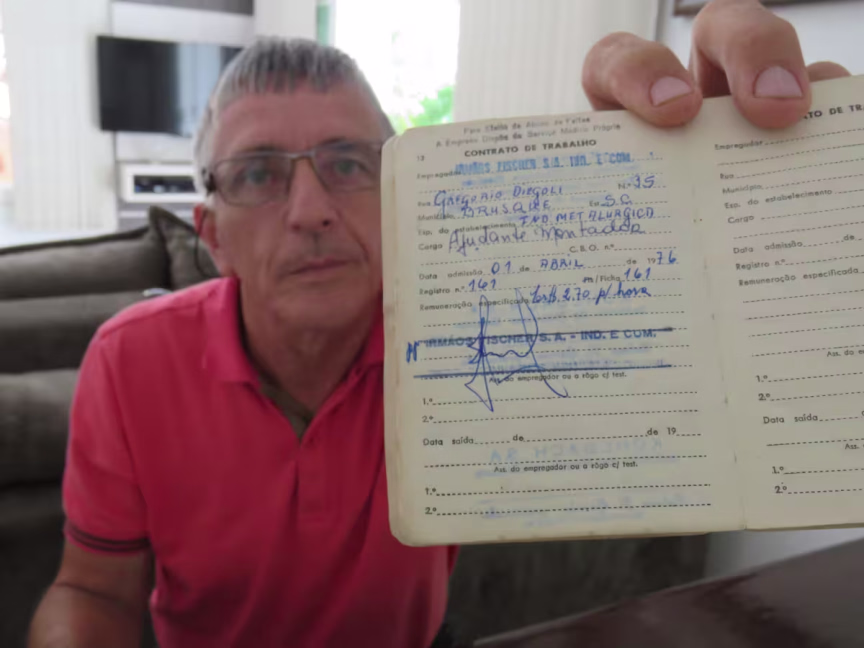 Para Efeito de Abono de Faltas
A Empresa Dispõe de Serviço Médico Próprio
13 CONTRATO DE TRABALHO
Empregador IRMÃOS FISCHER S.A. IND. E COM.
Rua GREGORIO DIEGOLI N.º 35
BRUSQUE Est. S.C.
Esp. do estabelecimento IND. METALURGICA
Cargo Ajudante Montador
C.B.O. n.º
Data admissão 01 de ABRIL de 1976
Registro n.º 161 m/Ficha 161
Remuneração especificada Cr$ 2,70 p/ hora
IRMÃOS FISCHER S.A. - IND. E COM.
Ass. do empregador ou a rôgo c/ test.
1.º
2.º
Data saída de de 19
Ass. do empregador ou a rôgo c/ test.
1.º
2.º
CONTRATO DE TRA
Empregador
Rua
Município
Esp. do estabelecimento
Cargo
Data admissão de
Registro n.º
Remuneração especificada
Ass. do em
1.º
2.º
Data saída de
Ass. do em
1.º
2.º